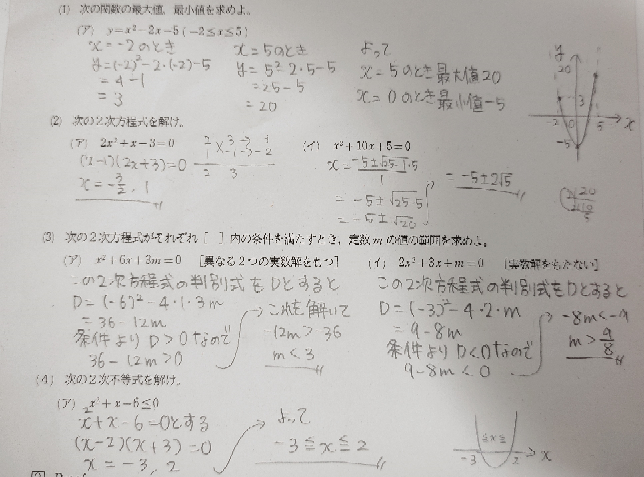 (1) 次の関数の最大値, 最小値を求めよ。
(ア) y=x²-2x-5 (-2≦x≦5)
x=-2のとき
y=(-2)²-2・(-2)-5
=4-1
=3
x=5のとき
y=5²-2・5-5
=25-5
=20
よって
x=5のとき最大値20
x=0のとき最小値-5
y
20
3
-2 0 5 x
-5
(2) 次の2次方程式を解け。
(ア) 2x²+x-3=0
(x-1)(2x+3)=0
x=-3/2, 1
(イ) x²+10x+5=0
x=-5±√25-1・5
1
=-5±√25-5
=-5±√20
=-5±2√5
(3) 次の2次方程式がそれぞれ [ ] 内の条件を満たすとき, 定数mの値の範囲を求めよ。
(ア) x²+6x+3m=0 [異なる2つの実数解をもつ]
この2次方程式の判別式をDとすると
D=(-6)²-4・1・3m
=36-12m
条件よりD>0なので
36-12m>0
これを解いて
-12m>36
m<3
(イ) 2x²+3x+m=0 [実数解をもたない]
この2次方程式の判別式をDとすると
D=(-3)²-4・2・m
=9-8m
条件よりD<0なので
9-8m<0
-8m<-9
m>9/8
(4) 次の2次不等式を解け。
(ア) x²+x-6≦0
x²+x-6=0とする
(x-2)(x+3)=0
x=-3, 2
よって
-3≦x≦2
≦x≦
-3 2 x